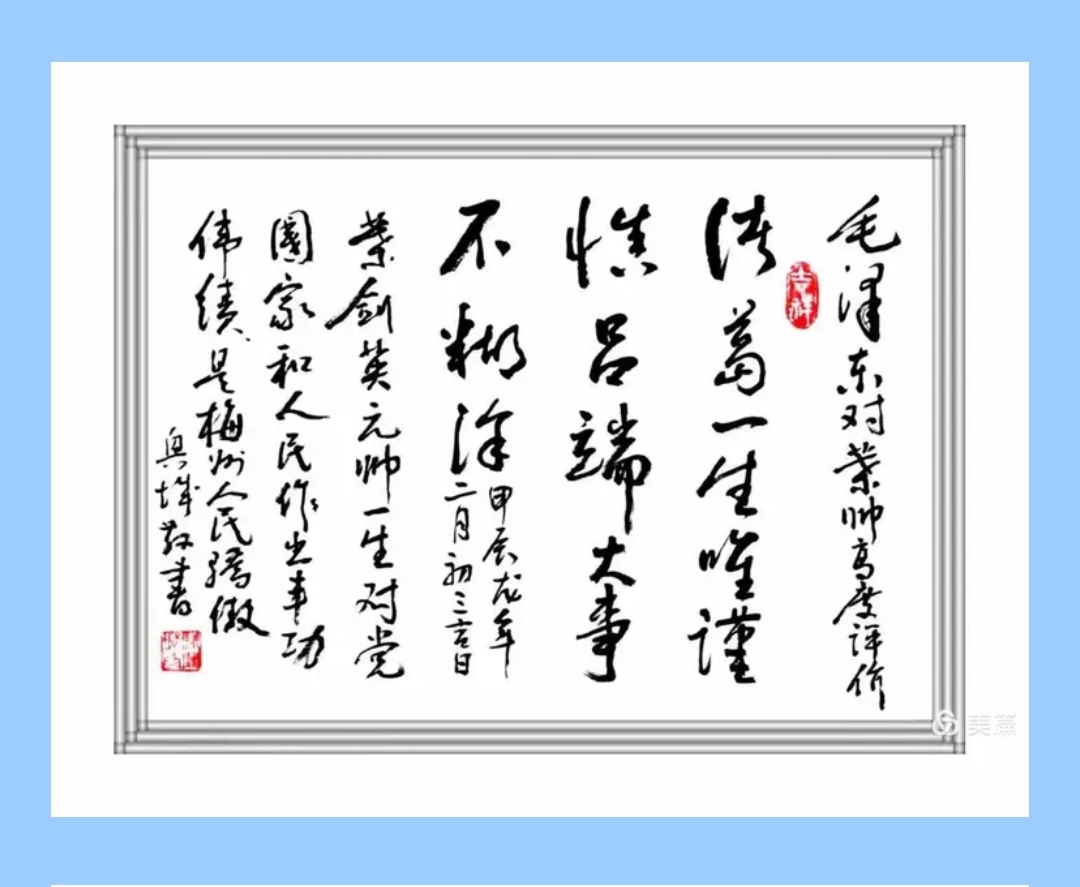 毛泽东对葉帅高度评价
吉祥
诸葛一生唯谨
慎吕端大事
不糊涂
甲辰龙年
二月初三吉日
葉剑英元帅一生对党
國家和人民作出丰功
伟绩是梅州人民骄傲
奥城敬書
美篇